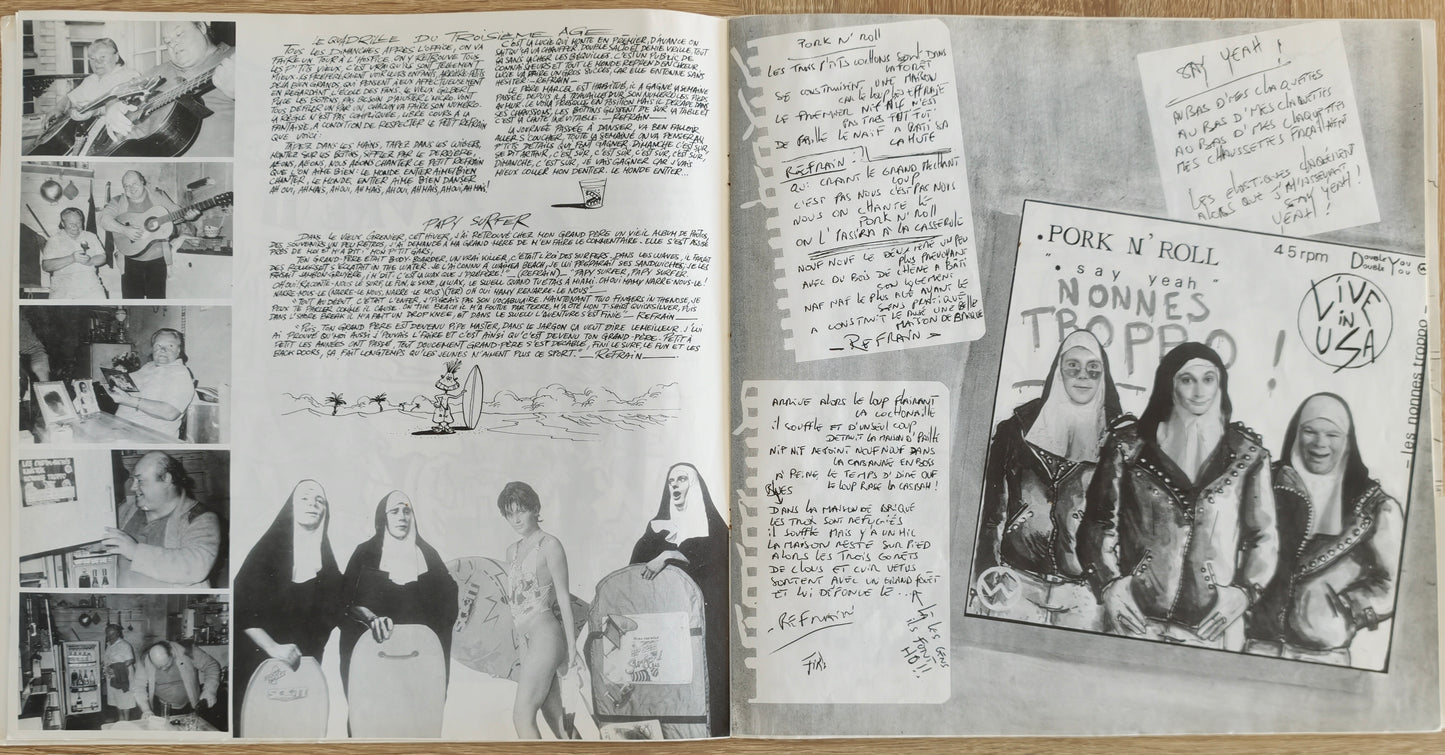 LE QUADRILLE DU TROISIEME AGE
TOUS LES DIMANCHES APRES L'OFFICE, ON VA
FAIRE UN TOUR A L'HOSTICE. ON Y RETROUVE TOUS
LES P'TITS VIEUX. C'EST VRAI QU'ILS SONT TELLEMENT
MIEUX. ILS PREFERERAIENT VOIR LEURS ENFANTS, ARRIERE-PETITS
DEJA BIEN GRANDS, QUI PENSENT A EUX AFFECTUEUSEMENT
EN REGARDANT L'ECOLE DES FANS. LE VIEUX GILBERT
PINCE LES BOTINS PAS BESOIN D'AJUSTER L'MICRO. VONT
TOUS DEFILER UN PAR UN CHACUN VA FAIRE SON NUMERO.
LA REGLE N'EST PAS COMPLIQUEE, LIBRE COURS A LA
FANTAISIE, A CONDITION DE RESPECTER LE PETIT REFRAIN
QUE VOICI
TAPER DANS LES MAINS, TAPER DANS LES
MONTER SUR LES BOTINS, SIFFLER PAR LE DERRIERE,
ALLONS, ALLONS, NOUS ALLONS CHANTER LE PETIT REFRAIN
QUE L'ON AIME BIEN: LE MONDE ENTIER AIME BIEN
CHANTER, LE MONDE ENTIER AIME BIEN DANSER
AH OUI, AH MAIS, AH OUI, AH MAIS, AH OUI, AH MAIS, AH OUI, AH MAIS!
C'EST LA LUCIE QUI MONTE EN PREMIER, D'AVANCE ON
SAIT QU'ÇA VA CHAUFFER. DOUBLE SALTO ET DEMIE VRILLE, TOUT
ÇA SANS LACHER LES BEQUILLES. C'EST UN PUBLIC DE
CONNAISSEURS ET TOUT LE MONDE REPREND EN CHŒUR
LUCIE VA FAIRE UN GROS SUCCES, CAR ELLE ENTONNE SANS
HESITER —REFRAIN—
LE PERE MARCEL EST L'HABITUE, IL A GAGNE LA SEMAINE
PASSEE, DEPUIS IL A TRAVAILLE DUR SON NUMERO LES PIEDS
AU MUR. LE VOILA PRESQUE EN POSITION MAIS IL DERAPE DANS
SES CHAUSSONS, LES BOTINS GLISSENT DE SUR LA TABLE ET
C'EST LA CHUTE INEVITABLE. —REFRAIN—
LA JOURNEE PASSEE A DANSER, VA BEN FALLOIR
ALLER S'COUCHER, TOUTE LA SEMAINE ON VA PENSER AU
P'TITS DETAILS QUI FONT GAGNER DIMANCHE C'EST SUR,
SE DIT ARTHUR, C'EST SUR, C'EST SUR, C'EST SUR, C'EST SUR,
DIMANCHE C'EST SUR, JE VAIS GAGNER CAR J'VAIS
MIEUX COLLER MON DENTIER. LE MONDE ENTIER...
PAPY SURFER
DANS LE VIEUX GRENIER, CET HIVER, J'AI RETROUVE CHER MON GRAND PERE UN VIEIL ALBUM DE PHOTOS,
DES SOUVENIRS UN PEU RETROS. J'AI DEMANDE A MA GRAND MERE DE M'EN FAIRE LE COMMENTAIRE. ELLE S'EST ASSISE
PRES DE MOI ET M'A DIT: " MON P'TIT GARS
TON GRAND-PERE ETAIT BODY BOARDER, UN VRAI KILLER, C'ETAIT L'ROI DES SURFERS. DANS LES WAVES, IL FAISAIT
DES ROLLERS ET S'ECLATAIT IN THE WATER. JE L'AI CONNU A WAIMEA BEACH, JE LUI PREPARAIT SES SANDWICHES, JE LES
FAISAIT JAMBON-GRUYERE, IN M'DIT: C'EST LUI QUE J'PREFERE!" —(REFRAIN)— "PAPY SURFER, PAPY SURFER
OH OUI RACONTE-NOUS LE SURF, LE FUN, LE SEXE, LA WAX, LE SWELL QUAND TU ETAIS A MIAMI. OH OUI HAMY NARRE-NOUS-LE!
NARRE-NOUS-LE (NARRE-LE NOUS, NARRE LE NOUS) (TER) OH OUI HAMY RENARRE-LE NOUS"
"TOUT AU DEBUT, C'ETAIT L'ENFER, J'PIGEAIS PAS SON VOCABULAIRE. MAINTENANT TWO FINGERS IN THE NOSE, JE
PEUX TE PARLER COMME IL CAUSE. ON THE BEACH IL M'A FOUTUE PAR TERRE, M'A OTE MON T-SHIRT QUICKSILVER, PUIS
DANS L'SHORE BREAK IL M'A FAIT UN DROP KNEE, ET DANS LE SWELL L'AVENTURE S'EST FINIE" —REFRAIN—
"PUIS, TON GRAND-PERE EST DEVENU PIPE MASTER, DANS LE JARGON ÇA VEUT DIRE LE MEILLEUR. J'LUI
AI PROUVE QU'MOI AUSSI J'POUVAIS L'FAIRE ET C'EST AINSI QU'C'EST DEVENU TON GRAND-PERE. PETIT A
PETIT LES ANNEES ONT PASSE, TOUT DOUCEMENT GRAND-PERE S'EST DECABLE, FINI LE SURF, LE FUN ET LES
BACK DOORS, ÇA FAIT LONGTEMPS QU'LES JEUNES N'AIMENT PLUS CE SPORT." —REFRAIN—
SCOTT
PORK N' ROLL
LES TROIS P'TITS COCHONS SONT DANS
LA FORÊT
SE CONSTRUISENT UNE MAISON
CAR LE LOUP LES EFFRAIE
LE PREMIER NIF NIF N'EST
PAS TRES FUT FUT
DE PAILLE LE NAÏF A BATI SA
HUTE
REFRAIN:
QUI CRAINT LE GRAND MECHANT
LOUP
C'EST PAS NOUS C'EST PAS NOUS
NOUS ON CHANTE LE
PORK N' ROLL
ON L'PASSERA A LA CASSEROLE
NOUF NOUF LE DEUXIEME UN PEU
PLUS PREVOYANT
AVEC DU BOIS DE CHENE A BATI
SON LOGEMENT
NAF NAF LE PLUS AGE AYANT LE
SENS PRATIQUE
A CONSTRUIT LE RUSE UNE BELLE
MAISON DE BRIQUE
— REFRAIN —
ARRIVE ALORS LE LOUP FLAIRANT
LA COCHONAILLE
IL SOUFFLE ET D'UN SEUL COUP
DETRUIT LA MAISON D'PAILLE
NIF NIF REJOINT NOUF NOUF DANS
LA CABANNE EN BOIS
A PEINE LE TEMPS D'DIRE OUF
LE LOUP RASE LA CASBAH!
DANS LA MAISON DE BRIQUE
LES TROIS SONT REFUGIÉS
IL SOUFFLE MAIS Y'A UN HIC
LA MAISON RESTE SUR PIED
ALORS LES TROIS GORETS
DE CLOUS ET CUIR VETUS
SORTENT AVEC UN GRAND FOUET
ET LUI DÉFONCE LE...
- REFRAIN
LES GENS
ILS FONT
HO!!
FIN
SAY YEAH!
AU BAS D'MES CLAQUETTES
AU BAS D'MES CLAQUETTES
AU BAS D'MES CLAQUETTES
MES CHAUSSETTES
LES ELASTIQUES
ALORS QUE J'M'
SAY YEAH!
YEAH!
.PORK N' ROLL
45rpm
DOUBLE YOU
DOUBLE YOU
"• say yeah "
NONNES
TROPPO !
LIVE
in
USA
— les nonnes troppo —